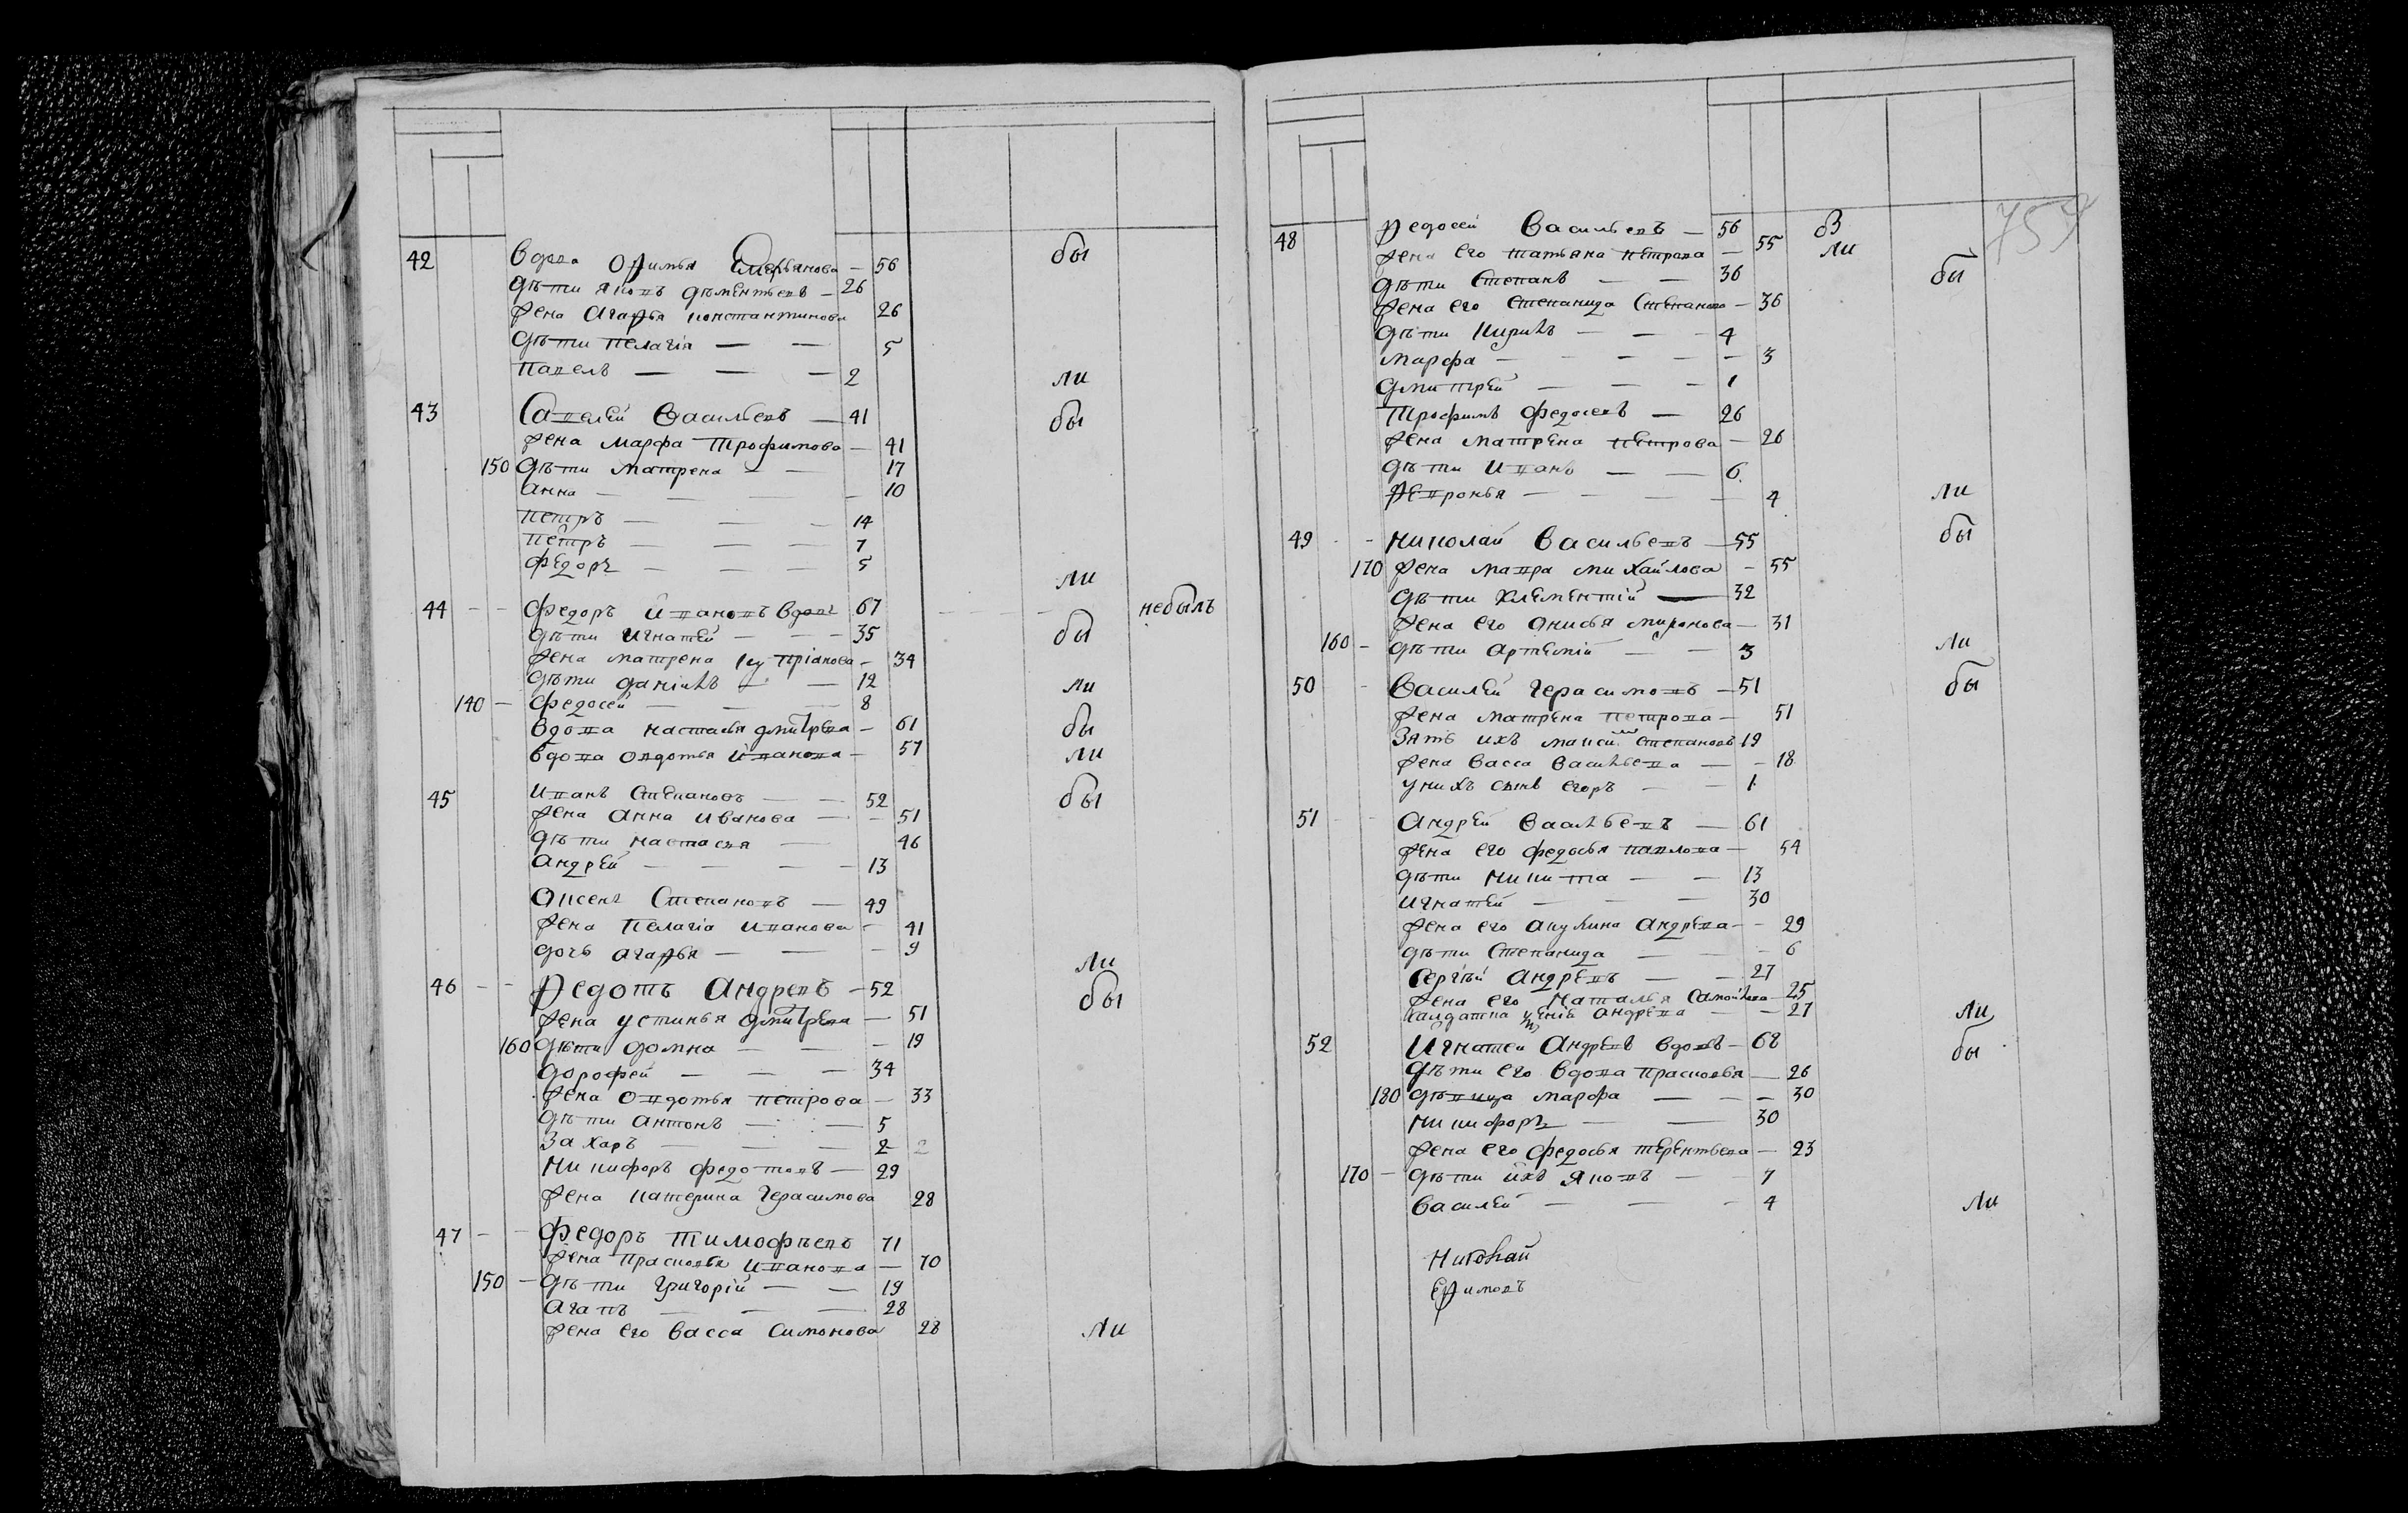 42 Вдова Офимья Емельянова — 56 бы
дѣти Яковъ Дементьевъ — 26
жена Агафья Константинова 26
дѣти Пелагія — — 5
Павелъ — — — 2 ли
43 Савелей Васильевъ — 41 бы
жена Марфа Трофимова — 41
150 дѣти Матрена — — 17
Анна — — — — 10
Петръ — — — 14
Петръ — — — 7
Федоръ — — — 5 ли
44 — — Федоръ Ивановъ вдовъ 67 — — небылъ
дѣти Игнатей — — — 35 бы
жена Матрена Куприанова — 34
дѣти Данілъ — — 12 ли
140 — Федосей — — — 8
вдова Настасья Дмитрева — 61 бы
вдова Овдотья Иванова — 57 ли
45 Иванъ Степановъ — — 52 бы
жена Анна Иванова — — 51
дѣти Настасья — 46
Андрей — — — — 13
Аксенъ Степановъ — 49
жена Пелагіа Иванова — 41
дочь Агафья — — — 9 ли
46 — — Федотъ Андревъ — 52 бы
жена Устинья Дмитрева — 51
160 дѣти Домна — — — 19
Дорофей — — — 34
жена Овдотья Петрова — 33
дѣти Антонъ — — 5
Захаръ — — — 2 2
Никифоръ Федотовъ — 29
жена Катерина Герасимова 28
47 — — Федоръ Тимофѣевъ 71
жена Прасковья Иванова — 70
150 — дѣти Григорій — — 19
Агапъ — — — 28
жена его Васса Симонова 28 ли
757
48 Федосей Васильевъ — 56 бы
жена его Татьяна Петрова — 55 ли
дѣти Степанъ — — 36 бы
жена его Степанида Степанова — 36
дѣти Кирилъ — — — 4
Марфа — — — — — 3
Дмитрей — — — 1
Трофимъ Федосевъ — 26
жена Матрена Петрова — 26
дѣти Иванъ — — 6
Февронья — — — — 4 ли
49 — — Николай Васильевъ — 55 бы
170 жена Мавра Михайлова — 55
дѣти Клементій — 32
жена его Анисья Миронова — 31
160 — дѣти Артемій — — 3 ли
50 — Василей Герасимовъ — 51 бы
жена Матрена Петрова — 51
Зять ихъ Максим Степановъ 19
жена Васса Васильева — — 18
у нихъ сынъ Егоръ — — 1
51 — — Андрей Васильевъ — 61
жена его Федосья Павлова — 54
дѣти Никита — — 13
Игнатей — — — 30
жена его Акулина Андрева — — 29
дѣти Степанида — — — 6
Сергѣй Андревъ — — 27
жена его Наталья Самойлова — 25
Андрева — — 27 ли
52 Игнатей Андревъ вдовъ — 68 бы
дѣти его вдова Прасковья — 26
180 дѣвица Марфа — — — 30
Никифоръ — — 30
жена его Федосья Терентьева — 23
170 — дѣти ихъ Яковъ — — 7
Василей — — — 4 ли
Николай
Ефимовъ